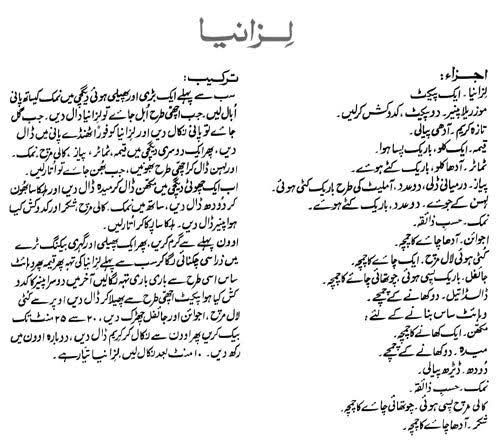 لزانیا
اجزاء:
لزانیا۔ ایک پیکٹ
موزریلا پنیر۔ دو پیکٹ، کدوکش کرلیں۔
تازہ کریم۔ آدھی پیالی۔
قیمہ۔ ایک کلو، باریک پسا ہوا۔
ٹماٹر۔ آدھا کلو، باریک کٹے ہوئے۔
پیاز۔ درمیانی ڈلی، دو عدد، آملیٹ کی طرح باریک کٹی ہوئی۔
لہسن کے جوئے۔ دو عدد، باریک کٹے ہوئے۔
نمک۔ حسب ذائقہ۔
اجوائن۔ آدھا چائے کا چمچہ۔
کٹی ہوئی لال مرچ۔ ایک چائے کا چمچہ۔
جائفل۔ باریک پسی ہوئی۔ چوتھائی چائے کا چمچہ۔
ڈالڈا آئیل۔ دو کھانے کے چمچے۔
وہائٹ ساس بنانے کے لئے:
مکھن۔ ایک کھانے کا چمچہ۔
میدہ۔ دو کھانے کے چمچے۔
دودھ۔ ڈیڑھ پیالی۔
نمک۔ حسب ذائقہ۔
کالی مرچ پسی ہوئی۔ چوتھائی چائے کا چمچہ۔
شکر۔ آدھا چائے کا چمچہ۔
ترکیب:
سب سے پہلے ایک بڑی اور پھیلی ہوئی دیگچی میں نمک کیساتھ پانی
اُبال لیں۔ جب اچھی طرح اُبل جائے تو لزانیا ڈال دیں۔ جب گل
جائے تو پانی نکال دیں اور لزانیا کو فوراً ٹھنڈے پانی میں ڈال
دیں، پھر ایک دوسری دیگچی میں قیمہ، ٹماٹر، پیاز، کالی مرچ، نمک،
اور لہسن ڈال کر اچھی طرح بھونیں، جب بھن جائے تو اُتارلیں۔
اب ایک چھوٹی دیگچی میں مکھن ڈال کر میدہ ڈال دیں اور ہلکا سا بھون
کر دودھ ڈال دیں، ساتھ میں نمک، کالی مرچ، شکر اور کدوکش کیا
ہوا پنیر ڈال دیں۔ ہلکا سا پکا کر اُتارلیں۔
اوون پہلے سے گرم کریں، پھر ایک پھیلی اور گہری بیکنگ ٹرے
میں ذراسی چکنائی لگا کر سب سے پہلے لزانیا کی تہہ پھر قیمہ پھر وہائٹ
ساس اسی طرح سے باری باری تہہ لگا لیں آخر میں دوسرا پنیر کا کدو
کش کیا ہوا پیکٹ اچھی طرح سے پھیلا کر ڈال دیں اوپر سے کٹی
لال مرچ، اجوائن اور جائفل چھڑک دیں، ۲۰۔ سے ۲۵ منٹ تک
بیک کریں پھر اوون سے نکال کر کریم ڈال دیں، دوبارہ اوون میں
رکھ دیں۔ ۱۰ منٹ بعد نکال لیں، لزانیا تیار ہے۔